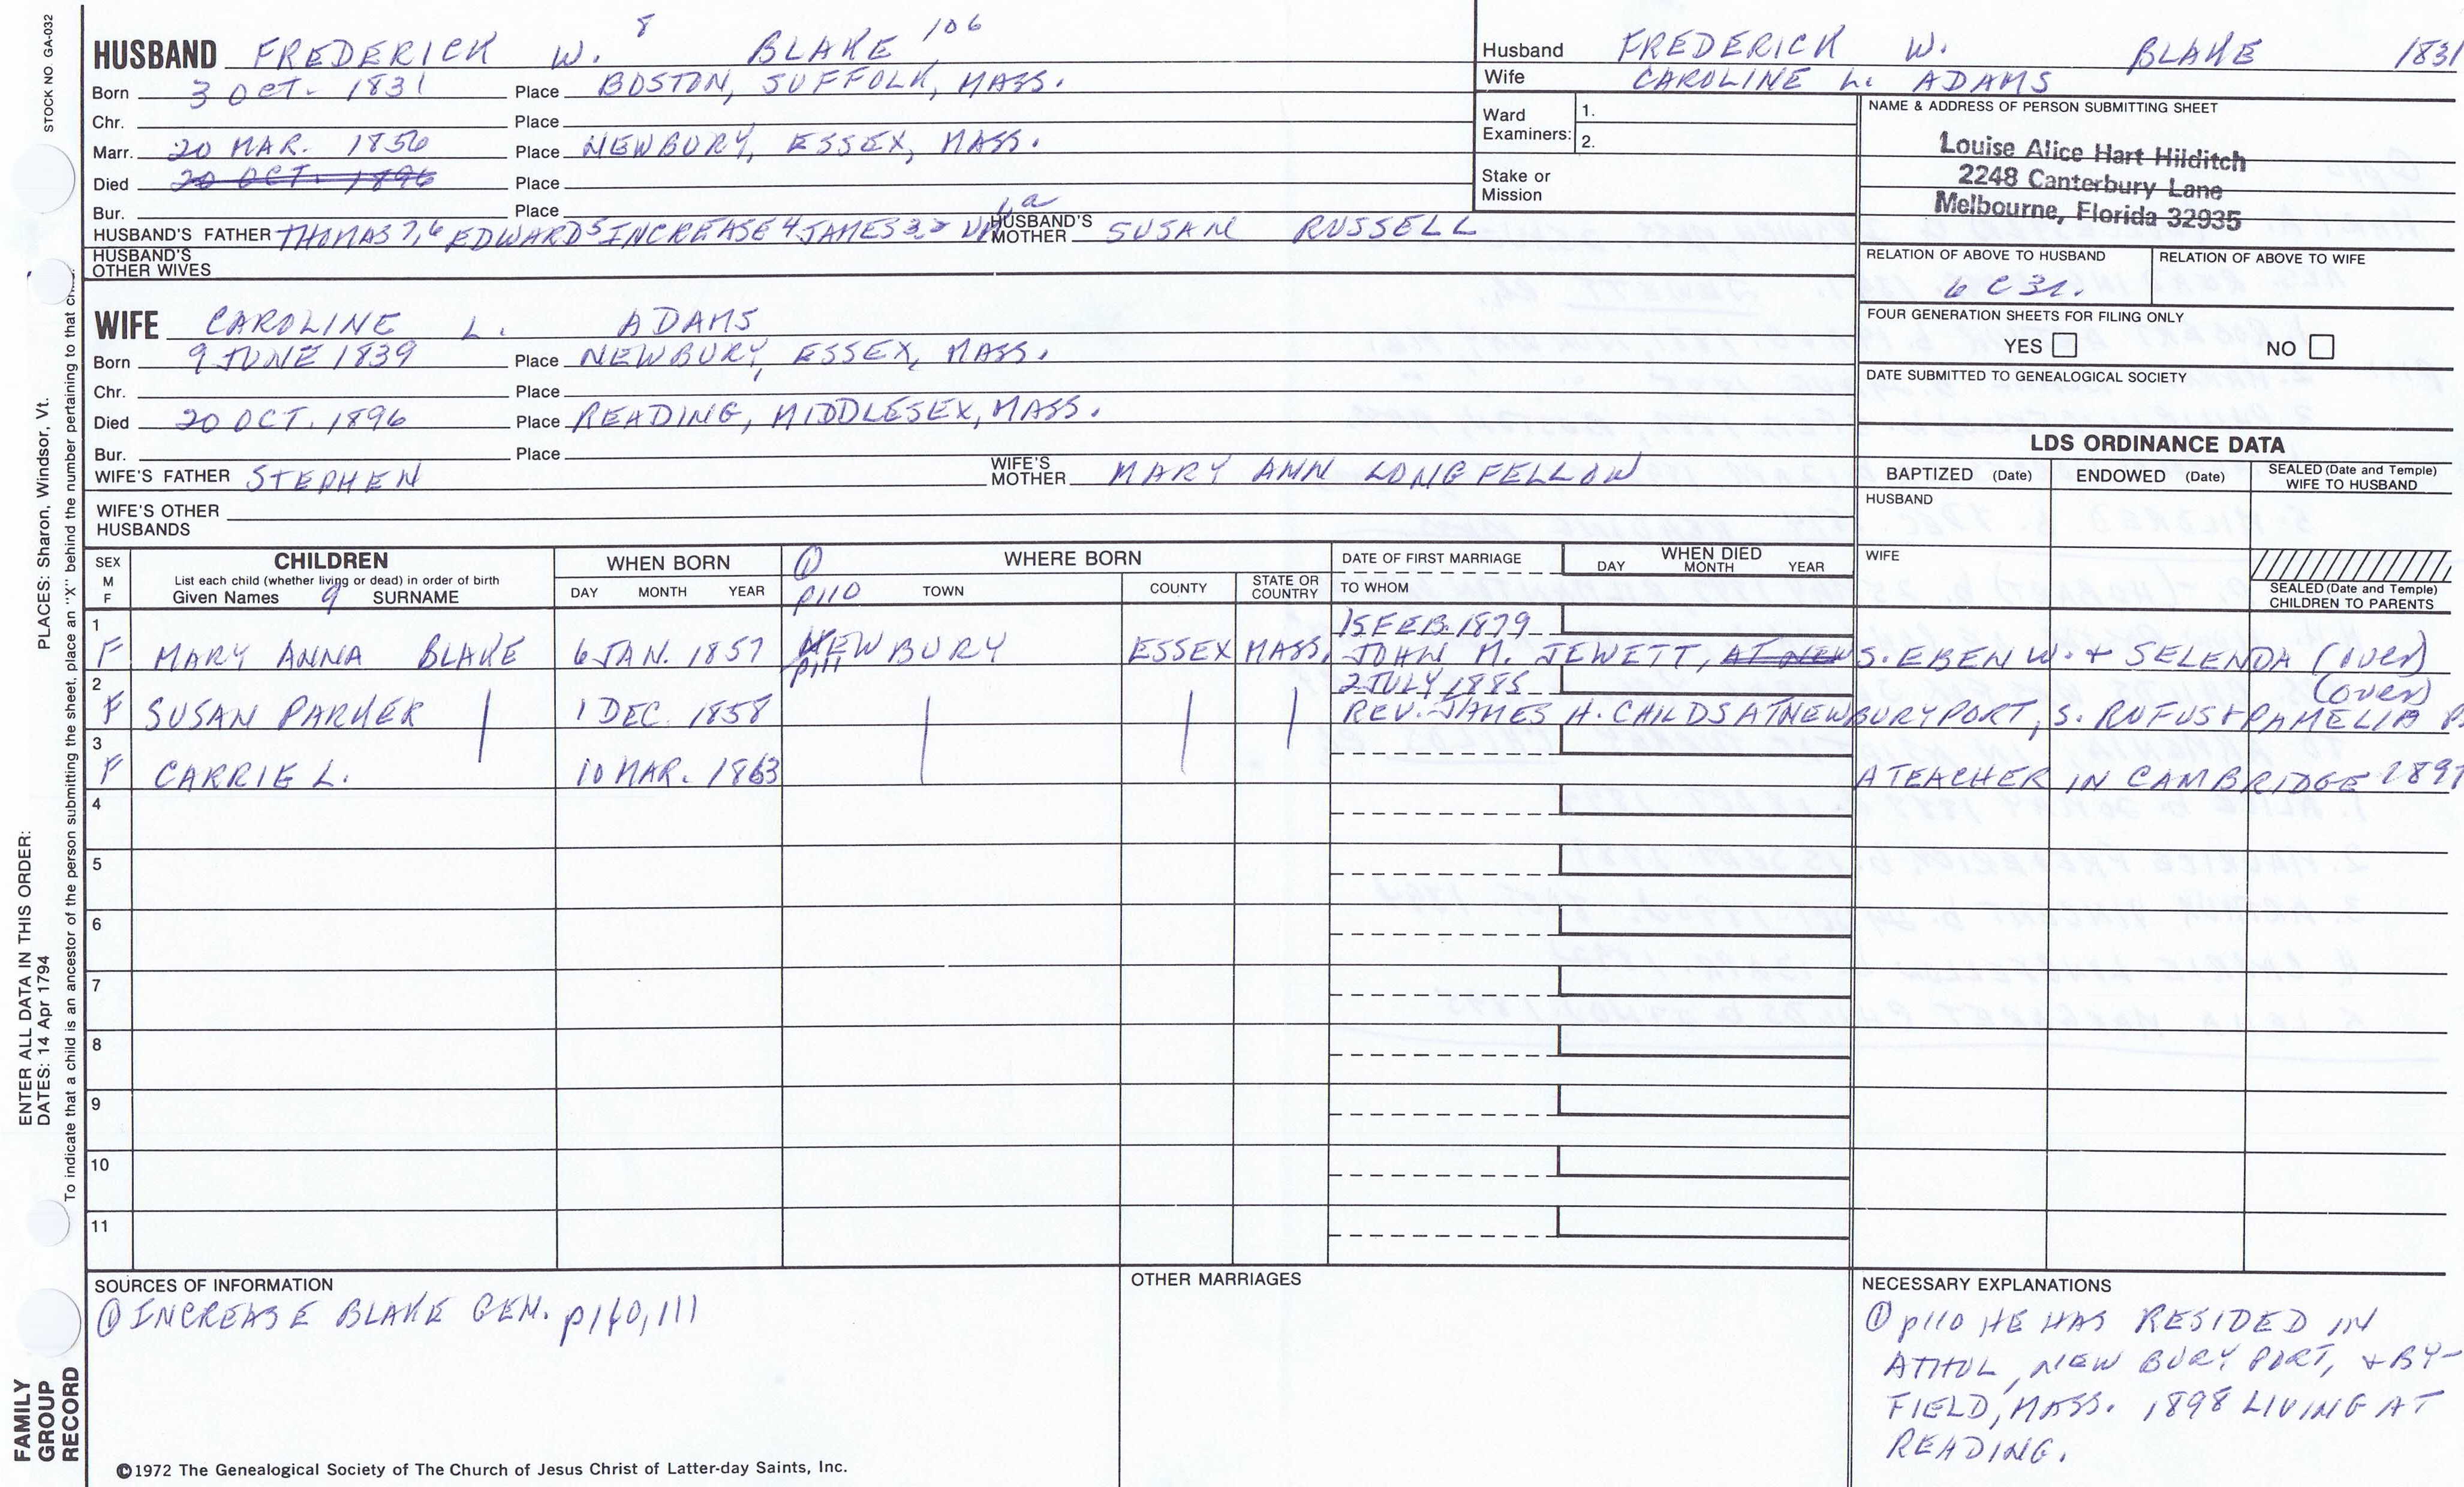 STOCK NO GA-032
HUSBAND FREDERICK W. 8 BLAKE 106
Born 3 OCT. 1831 Place BOSTON, SUFFOLK, MASS.
Chr. Place
Marr. 20 MAR. 1856 Place NEWBURY, ESSEX, MASS.
Died 20 OCT. 1896 Place
Bur. Place
HUSBAND'S FATHER THOMAS 7,6 EDWARD 5 INCREASE 4 JAMES 3,2 WM 1 a HUSBAND'S MOTHER SUSAN RUSSELL
HUSBAND'S OTHER WIVES
WIFE CAROLINE L. ADAMS
Born 9 JUNE 1839 Place NEWBURY, ESSEX, MASS.
Chr. Place
Died 20 OCT. 1896 Place READING, MIDDLESEX, MASS.
Bur. Place
WIFE'S FATHER STEPHEN WIFE'S MOTHER MARY ANN LONGFELLOW
WIFE'S OTHER HUSBANDS
Husband FREDERICK W. BLAKE 1831
Wife CAROLINE L. ADAMS
Ward Examiners: 1.
2.
Stake or Mission
NAME & ADDRESS OF PERSON SUBMITTING SHEET
Louise Alice Hart Hilditch
2248 Canterbury Lane
Melbourne, Florida 32935
RELATION OF ABOVE TO HUSBAND RELATION OF ABOVE TO WIFE
6 C 3r.
FOUR GENERATION SHEETS FOR FILING ONLY
YES NO
DATE SUBMITTED TO GENEALOGICAL SOCIETY
LDS ORDINANCE DATA
BAPTIZED (Date) ENDOWED (Date) SEALED (Date and Temple) WIFE TO HUSBAND
HUSBAND
WIFE
SEALED (Date and Temple) CHILDREN TO PARENTS
SEX M F
CHILDREN
List each child (whether living or dead) in order of birth
Given Names 9 SURNAME
WHEN BORN
DAY MONTH YEAR
① p110
WHERE BORN
TOWN COUNTY STATE OR COUNTRY
DATE OF FIRST MARRIAGE
TO WHOM
WHEN DIED
DAY MONTH YEAR
15 FEB. 1879
1 F MARY ANNA BLAKE 6 JAN. 1857 NEWBURY ESSEX MASS. JOHN M. JEWETT, AT NEW S. EBEN W. + SELENDA (over)
p111 2 JULY 1885 (over)
2 F SUSAN PARKER 1 DEC. 1858 REV. JAMES H. CHILDS AT NEWBURYPORT, S. RUFUS + PAMELIA
3 F CARRIE L. 10 MAR. 1863 A TEACHER IN CAMBRIDGE
4
5
6
7
8
9
10
11
SOURCES OF INFORMATION
① INCREASE BLAKE GEN. p110, 111
OTHER MARRIAGES
NECESSARY EXPLANATIONS
① p110 HE HAS RESIDED IN
ATHOL, NEW BURY PORT, + BY-
FIELD, MASS. 1898 LIVING AT
READING.
©1972 The Genealogical Society of The Church of Jesus Christ of Latter-day Saints, Inc.
FAMILY GROUP RECORD
ENTER ALL DATA IN THIS ORDER:
DATES: 14 Apr 1794
PLACES: Sharon, Windsor, Vt.
To indicate that a child is an ancestor of the person submitting the sheet, place an "X" behind the number pertaining to that